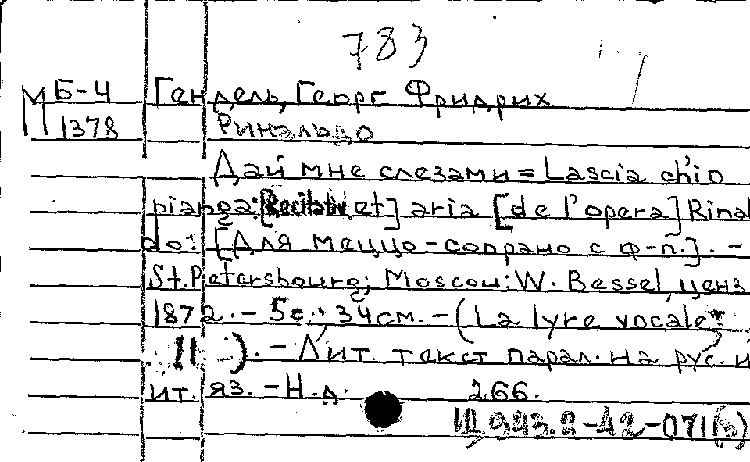 783
М Б-4 Гендель, Георг Фридрих
1378 Ринальдо
Дай мне слезами = Lascia ch'io
pianga: [Recitativ et] aria [de l'opera] Rinal
do: [Для меццо-сопрано с ф-п.]. -
St. Petersbourg; Moscou: W. Bessel, ценз
1872. - 5с.; 34см. - (La lyre vocale;
11 ). - Лит. текст парал. на рус. и
ит. яз. - Н.д. 266.
Щ943.2-42-071(3)